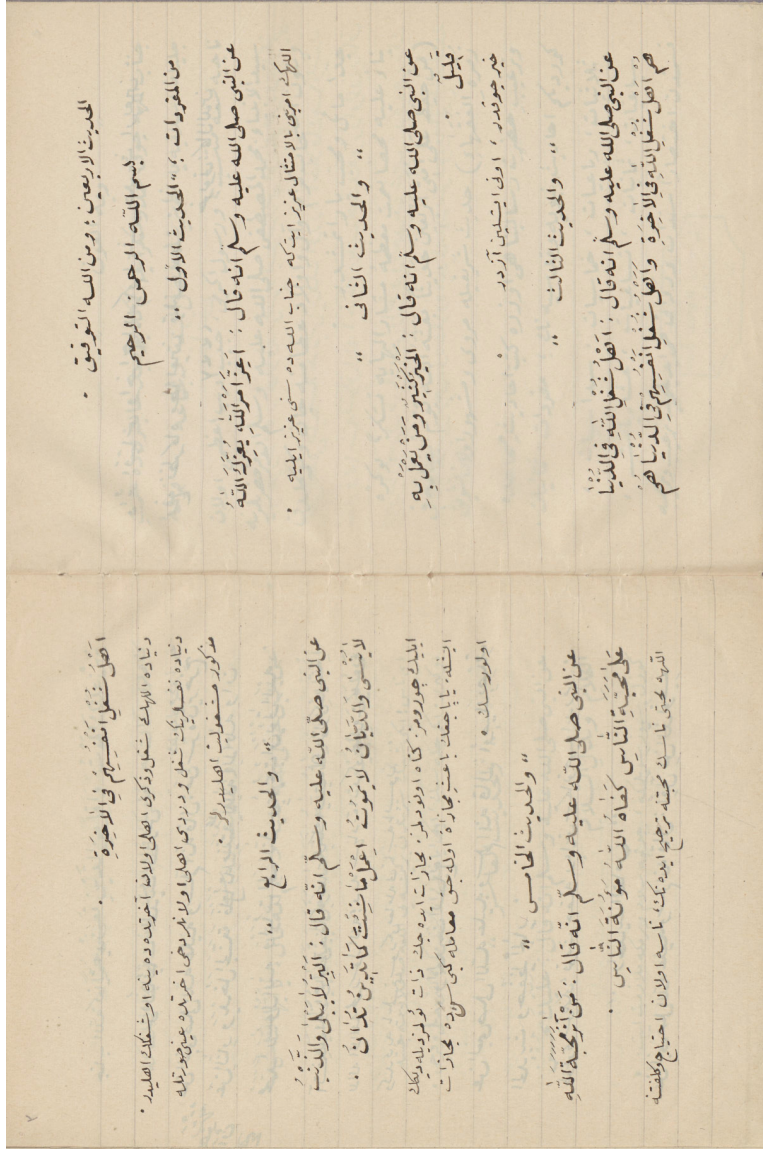 الحديث الاربعين ؛ ومن الله التوفيق .
بسم الله الرحمن الرحيم
من المفردات ؛ „ الحديث الاول „
عن النبى صلى الله عليه وسلم انه قال : اَعِزَّ اَمْرَ اللّٰهِ يُعِزَّكَ اللّٰهُ
اللهڭ امرينى بالامتثال عزيز ايت كه جناب الله ده سنى عزيز ايليه .
„ والحديث الثانى „
عن النبى صلى الله عليه وسلم انه قال : اَلْخَيْرُ كَثِيرٌ وَمَنْ يَعْمَلُ بِهِ
قَلِيلٌ .
خير چوقدر ؛ اونى ايشلين آزدر .
„ والحديث الثالث „
عن النبى صلى الله عليه وسلم انه قال : اَهْلُ شُغْلِ اللّٰهِ فِى الدُّنْيَا
هُمْ اَهْلُ شُغْلِ اللّٰهِ فِى الْاٰخِرَةِ وَاَهْلُ شُغْلِ اَنْفُسِهِمْ فِى الدُّنْيَا هُمْ
اَهْلُ شُغْلِ اَنْفُسِهِمْ فِى الْاٰخِرَةِ .
دنياده اللهڭ شغل وذكرى اهلى اولان آخرتده ده ينه او شغلڭ اهليدر .
دنياده نفسلرينڭ شغل ودردى اهلى اولانلر دخى اخرتده عينى صورتله
مذكور مشغوليت اهليدرلر .
„ والحديث الرابع „
عن النبى صلى الله عليه وسلم انه قال : اَلْبِرُّ لَا يَبْلٰى وَالذَّنْبُ
لَا يُنْسٰى وَالدَّيَّانُ لَا يَمُوتُ اِعْمَلْ مَا شِئْتَ كَمَا تَدِينُ تُدَانُ .
ايليك چورومز ، كناه اونودلمز ، مجازات ايده جك ذات ئولمز ديله ديكڭ
ايشله ، ياپاجغڭ باعث مجازاة اوله جق معامله كبى سن ده مجازات
اولورسڭ .
„ والحديث الخامس „
عن النبى صلى الله عليه وسلم انه قال : مَنْ اٰثَرَ مَحَبَّةَ اللّٰهِ
عَلٰى مَحَبَّةِ النَّاسِ كَفَاهُ اللّٰهُ مَؤُنَةَ النَّاسِ .
اللهه محبتى ناسڭ محبتنه ترجيح ايده نڭ ، ناسه اولان احتياج وكلفتنه